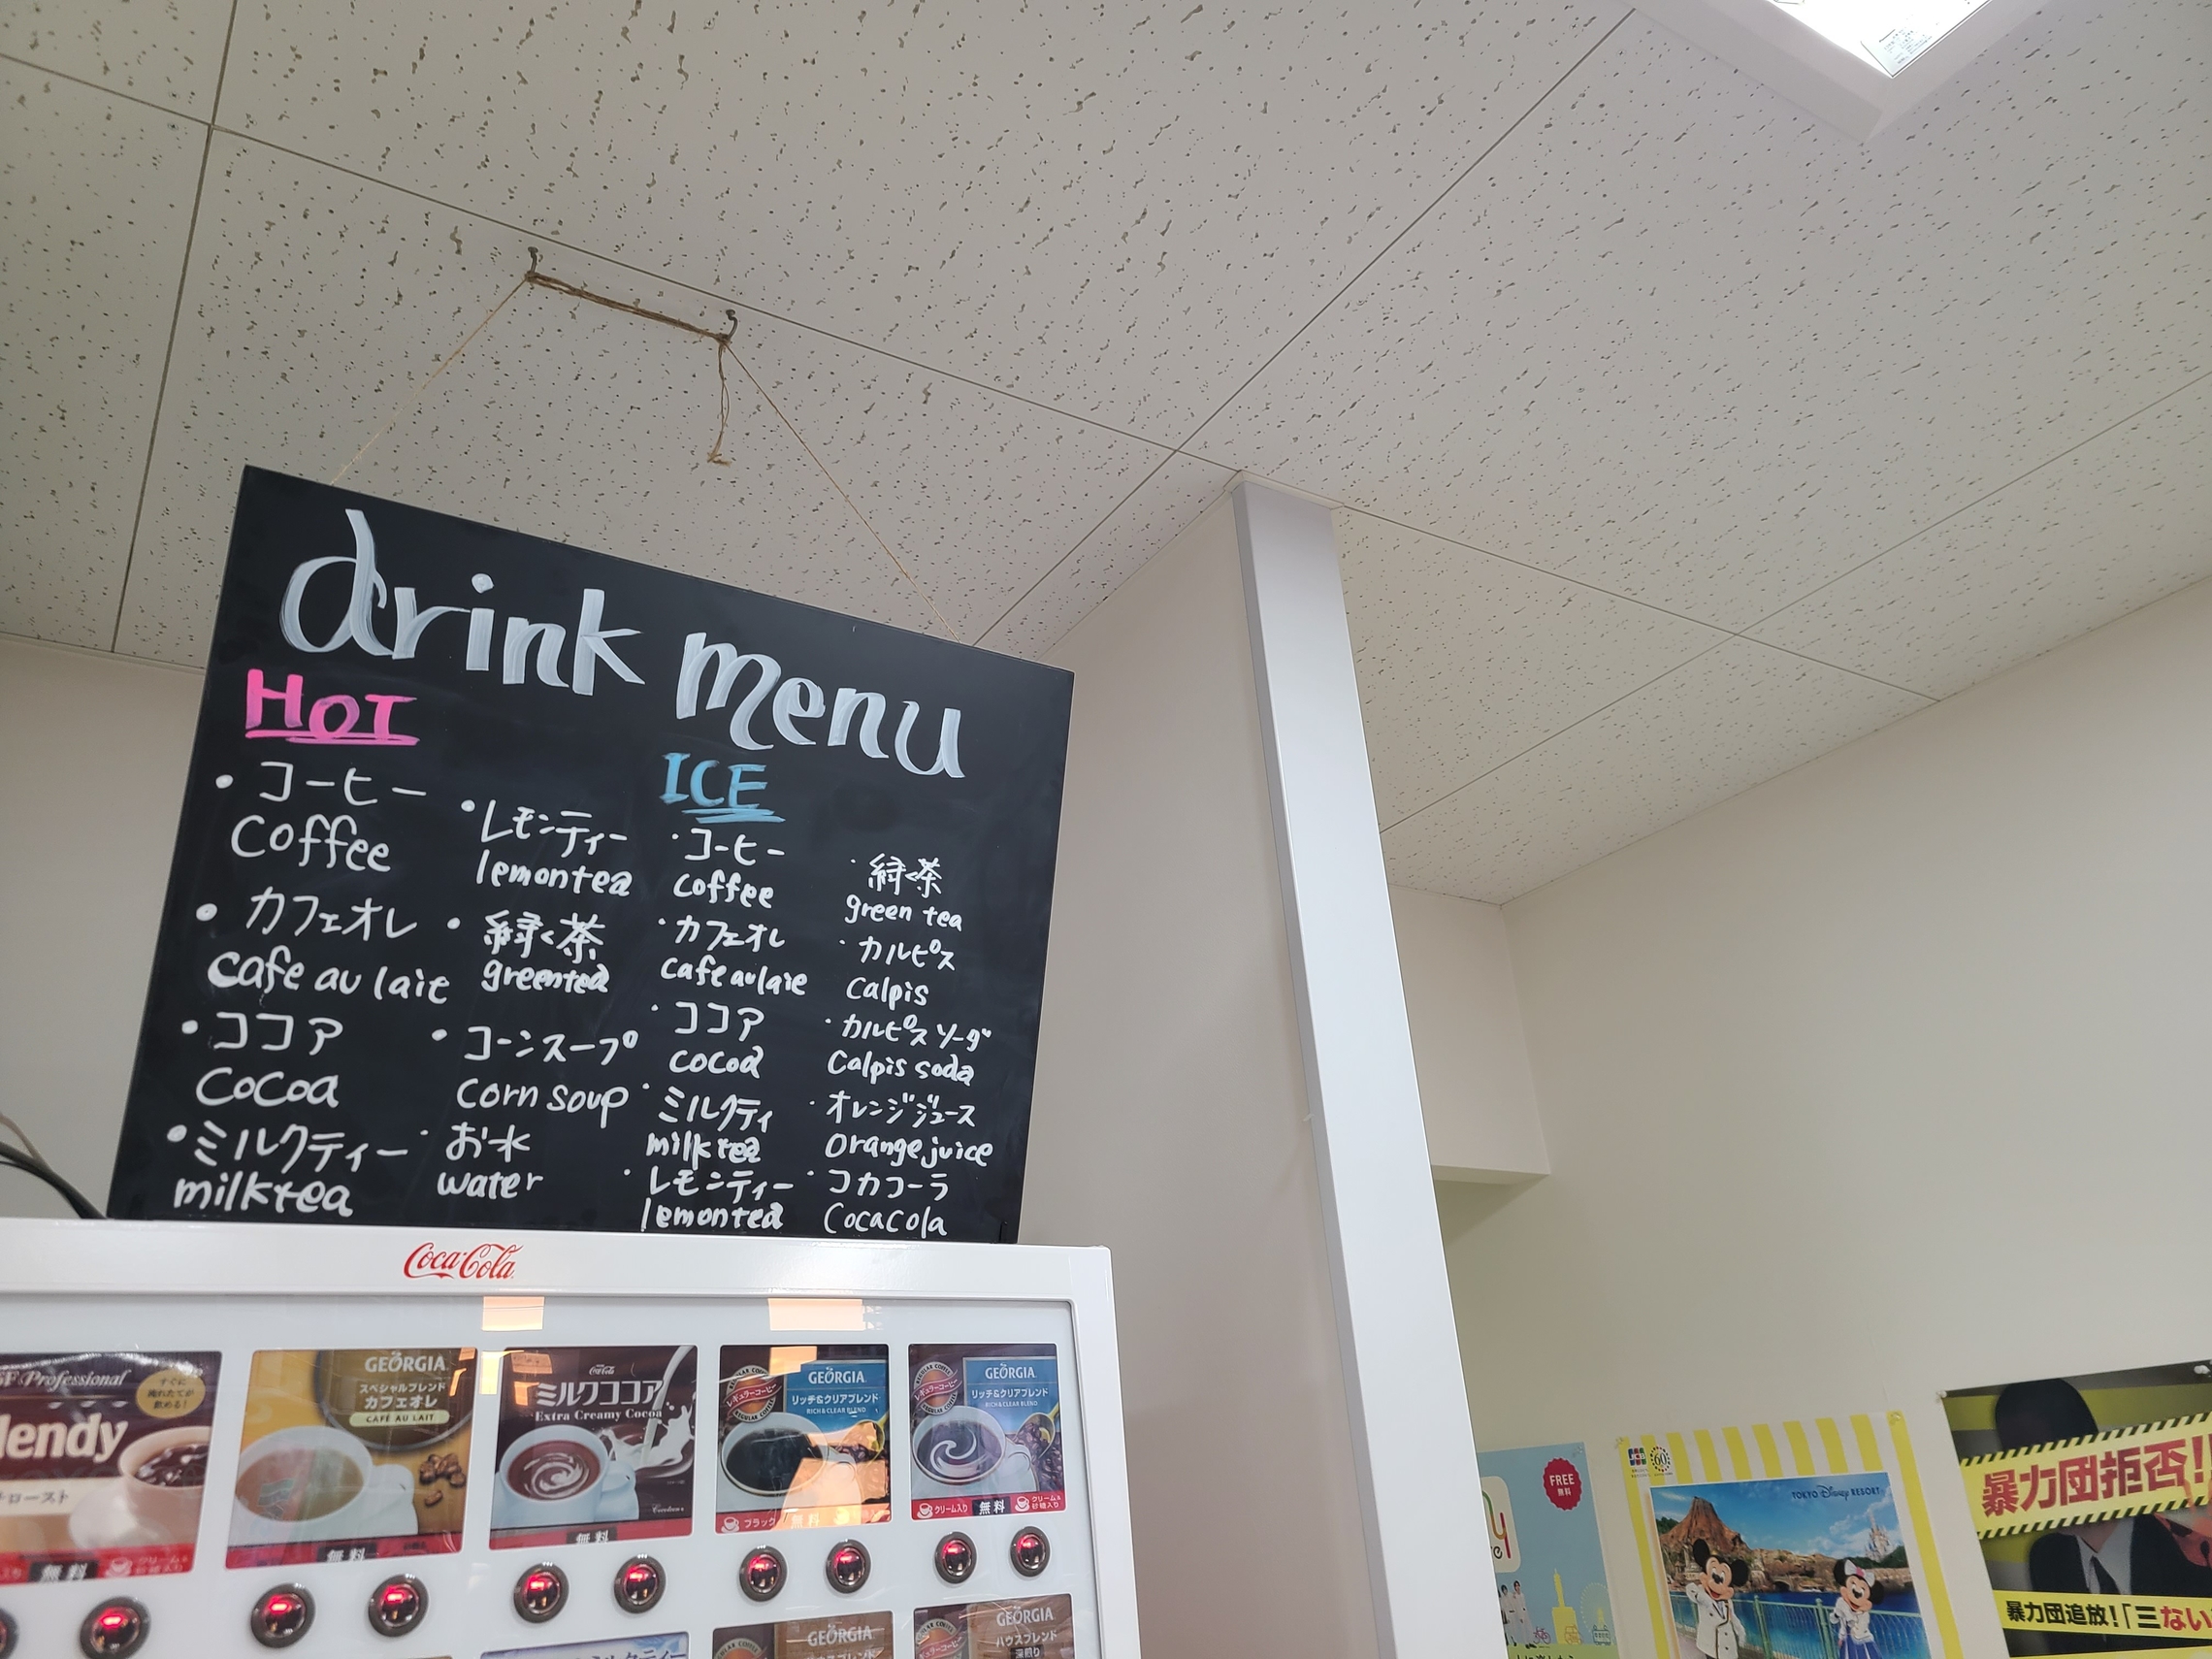 drink menu
HOT
・コーヒー
Coffee
・カフェオレ
cafe au lait
・ココア
Cocoa
・ミルクティー
milktea
・レモンティー
lemontea
・緑茶
greentea
・コーンスープ
corn soup
・お水
water
ICE
・コーヒー
coffee
・カフェオレ
cafe au late
・ココア
cocoa
・ミルクティ
milktea
・レモンティー
lemontea
・緑茶
green tea
・カルピス
Calpis
・カルピスソーダ
Calpis soda
・オレンジジュース
orangejuice
・コカコーラ
CocaCola
Coca-Cola
Professional
すぐに
淹れたてが
飲める!
無料
GEORGIA
スペシャルブレンド
カフェオレ
CAFÉ AU LAIT
無料
Coca-Cola
ミルクココア
Extra Creamy Cocoa
無料
レギュラーコーヒー
REGULAR COFFEE
GEORGIA
リッチ&クリアブレンド
RICH & CLEAR BLEND
ブラック
無料
レギュラーコーヒー
REGULAR COFFEE
GEORGIA
リッチ&クリアブレンド
RICH & CLEAR BLEND
クリーム入り
無料
クリーム&
砂糖入り
GEORGIA
GEORGIA
ハウスブレンド
深煎り
FREE
無料
JCB
60
TOKYO Disney RESORT
暴力団拒否!!
暴力団追放!「三ない